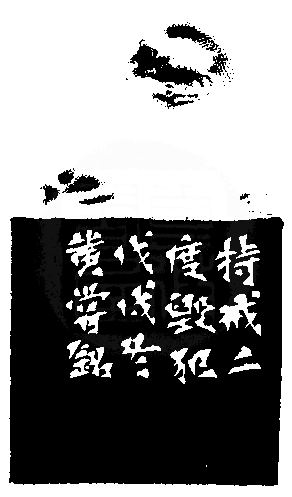 持戒二
度毀犯
戊戌冬
黃嘗銘